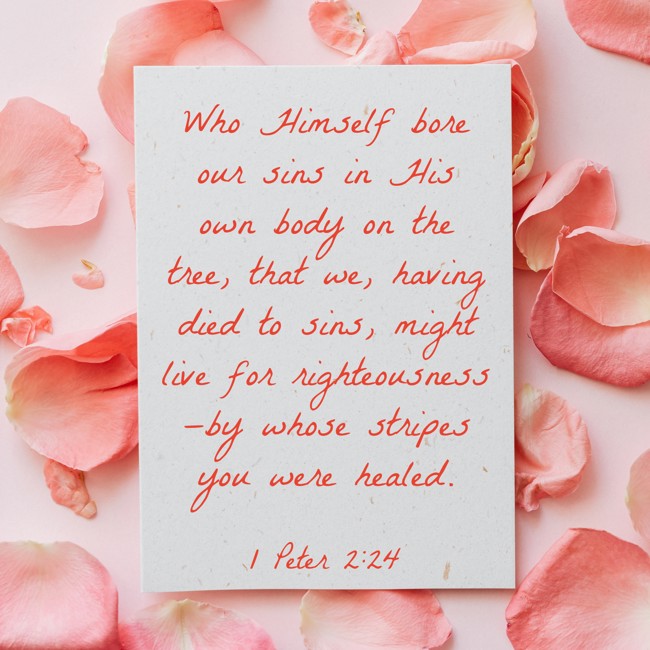 Who Himself bore
our sins in His
own body on the
tree, that we, having
died to sins, might
live for righteousness
—by whose stripes
you were healed.
1 Peter 2:24